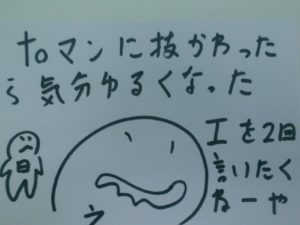 toマンに抜かやった
ら気分ゆるくなった
日
工を2回
言いたく
ねーや
え